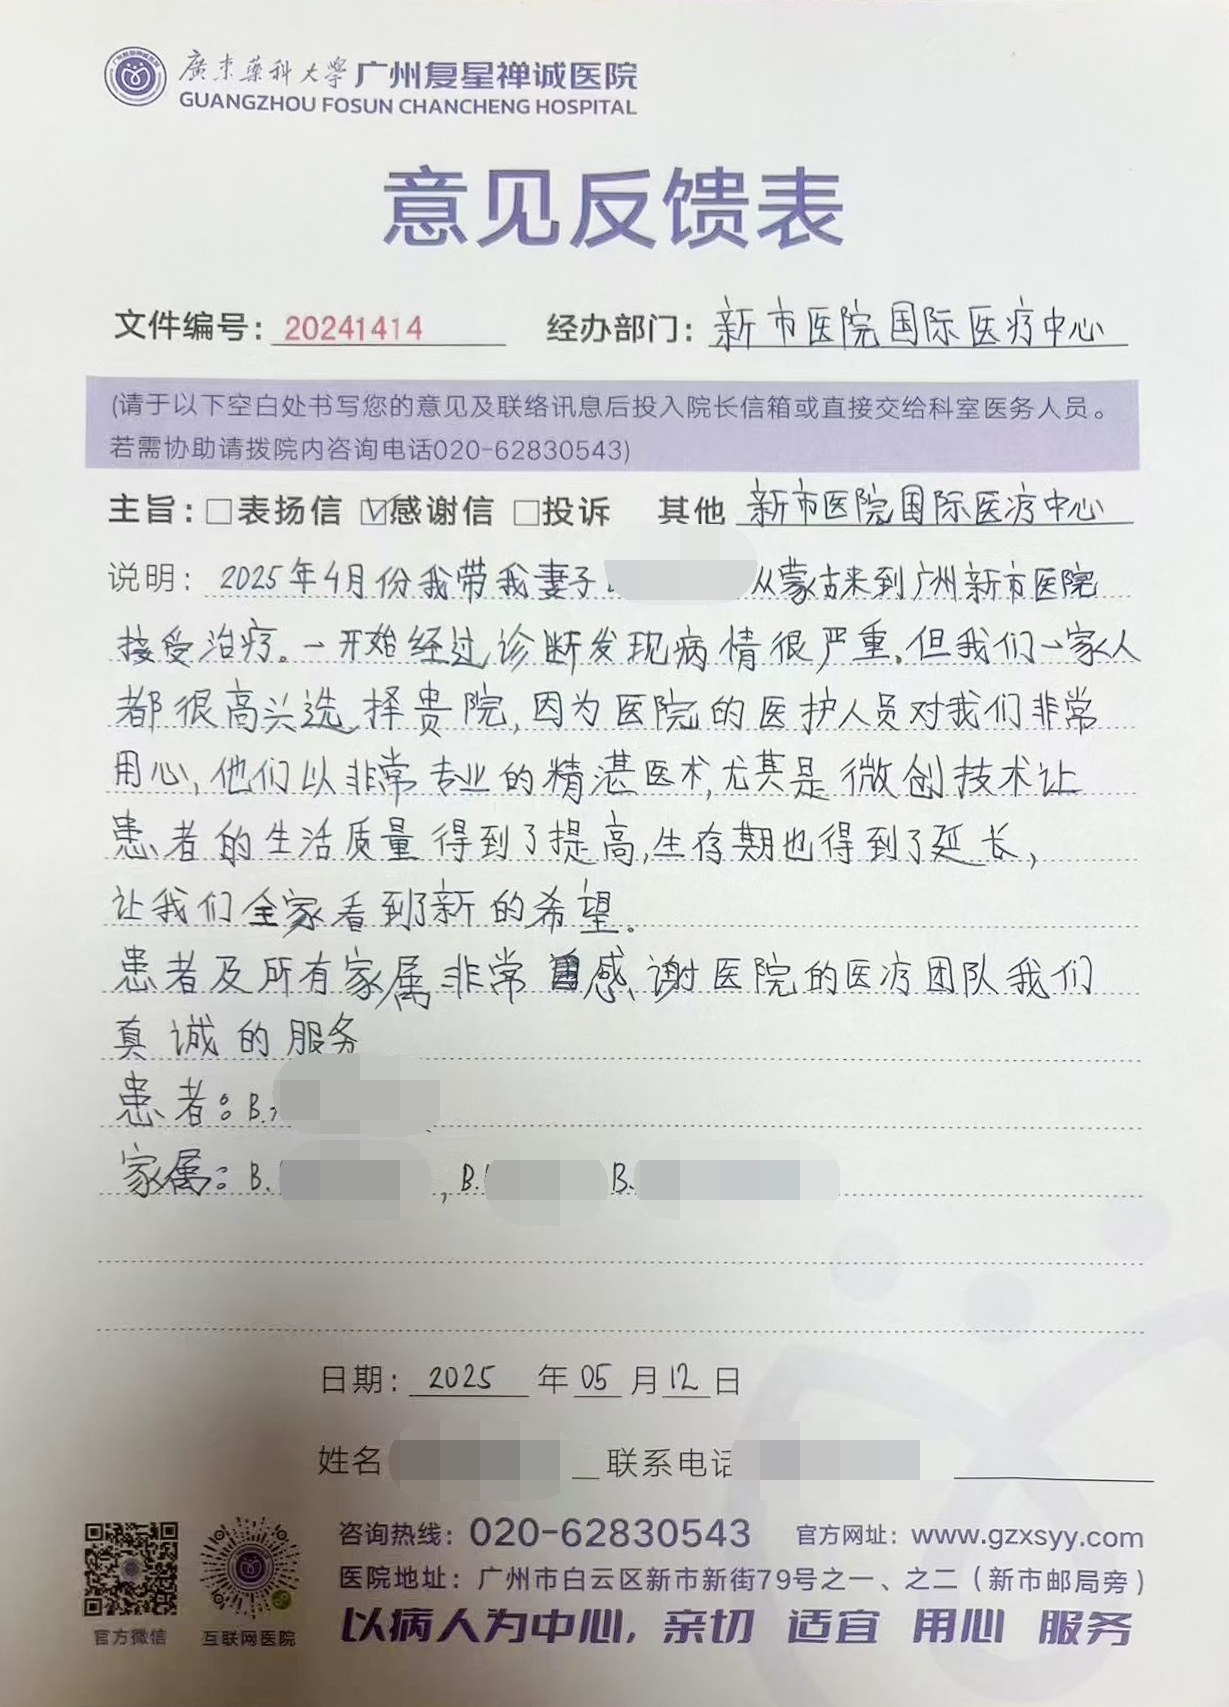 廣東药科大學 广州复星禅诚医院
GUANGZHOU FOSUN CHANCHENG HOSPITAL
意见反馈表
文件编号: 20241414 经办部门: 新市医院国际医疗中心
(请于以下空白处书写您的意见及联络讯息后投入院长信箱或直接交给科室医务人员。
若需协助请拨院内咨询电话020-62830543)
主旨: □表扬信 ☑感谢信 □投诉 其他 新市医院国际医疗中心
说明: 2025年4月份我带我妻子 从蒙古来到广州新市医院
接受治疗。一开始经过诊断发现病情很严重,但我们一家人
都很高兴选择贵院,因为医院的医护人员对我们非常
用心,他们以非常专业的精湛医术,尤其是微创技术让
患者的生活质量得到了提高,生存期也得到了延长,
让我们全家看到了新的希望。
患者及所有家属非常感谢医院的医疗团队我们
真诚的服务
患者: B.
家属: B. , B. B.
日期: 2025 年 05 月 12 日
姓名 联系电话
咨询热线: 020-62830543 官方网址: www.gzxsyy.com
医院地址: 广州市白云区新市新街79号之一、之二(新市邮局旁)
官方微信 互联网医院 以病人为中心, 亲切 适宜 用心 服务